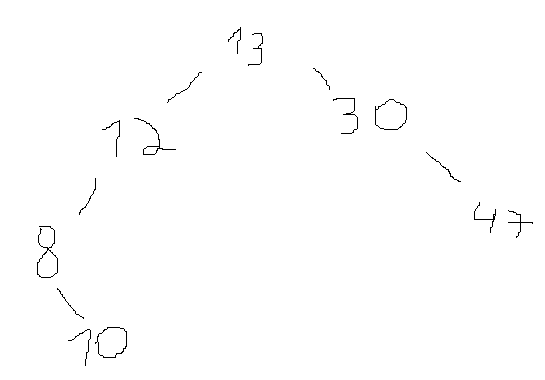 13
12 30
8 47
10